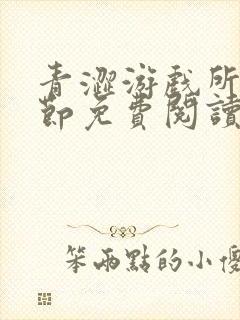 青澀游戲所
節免費閱讀
笨兩點的小傻